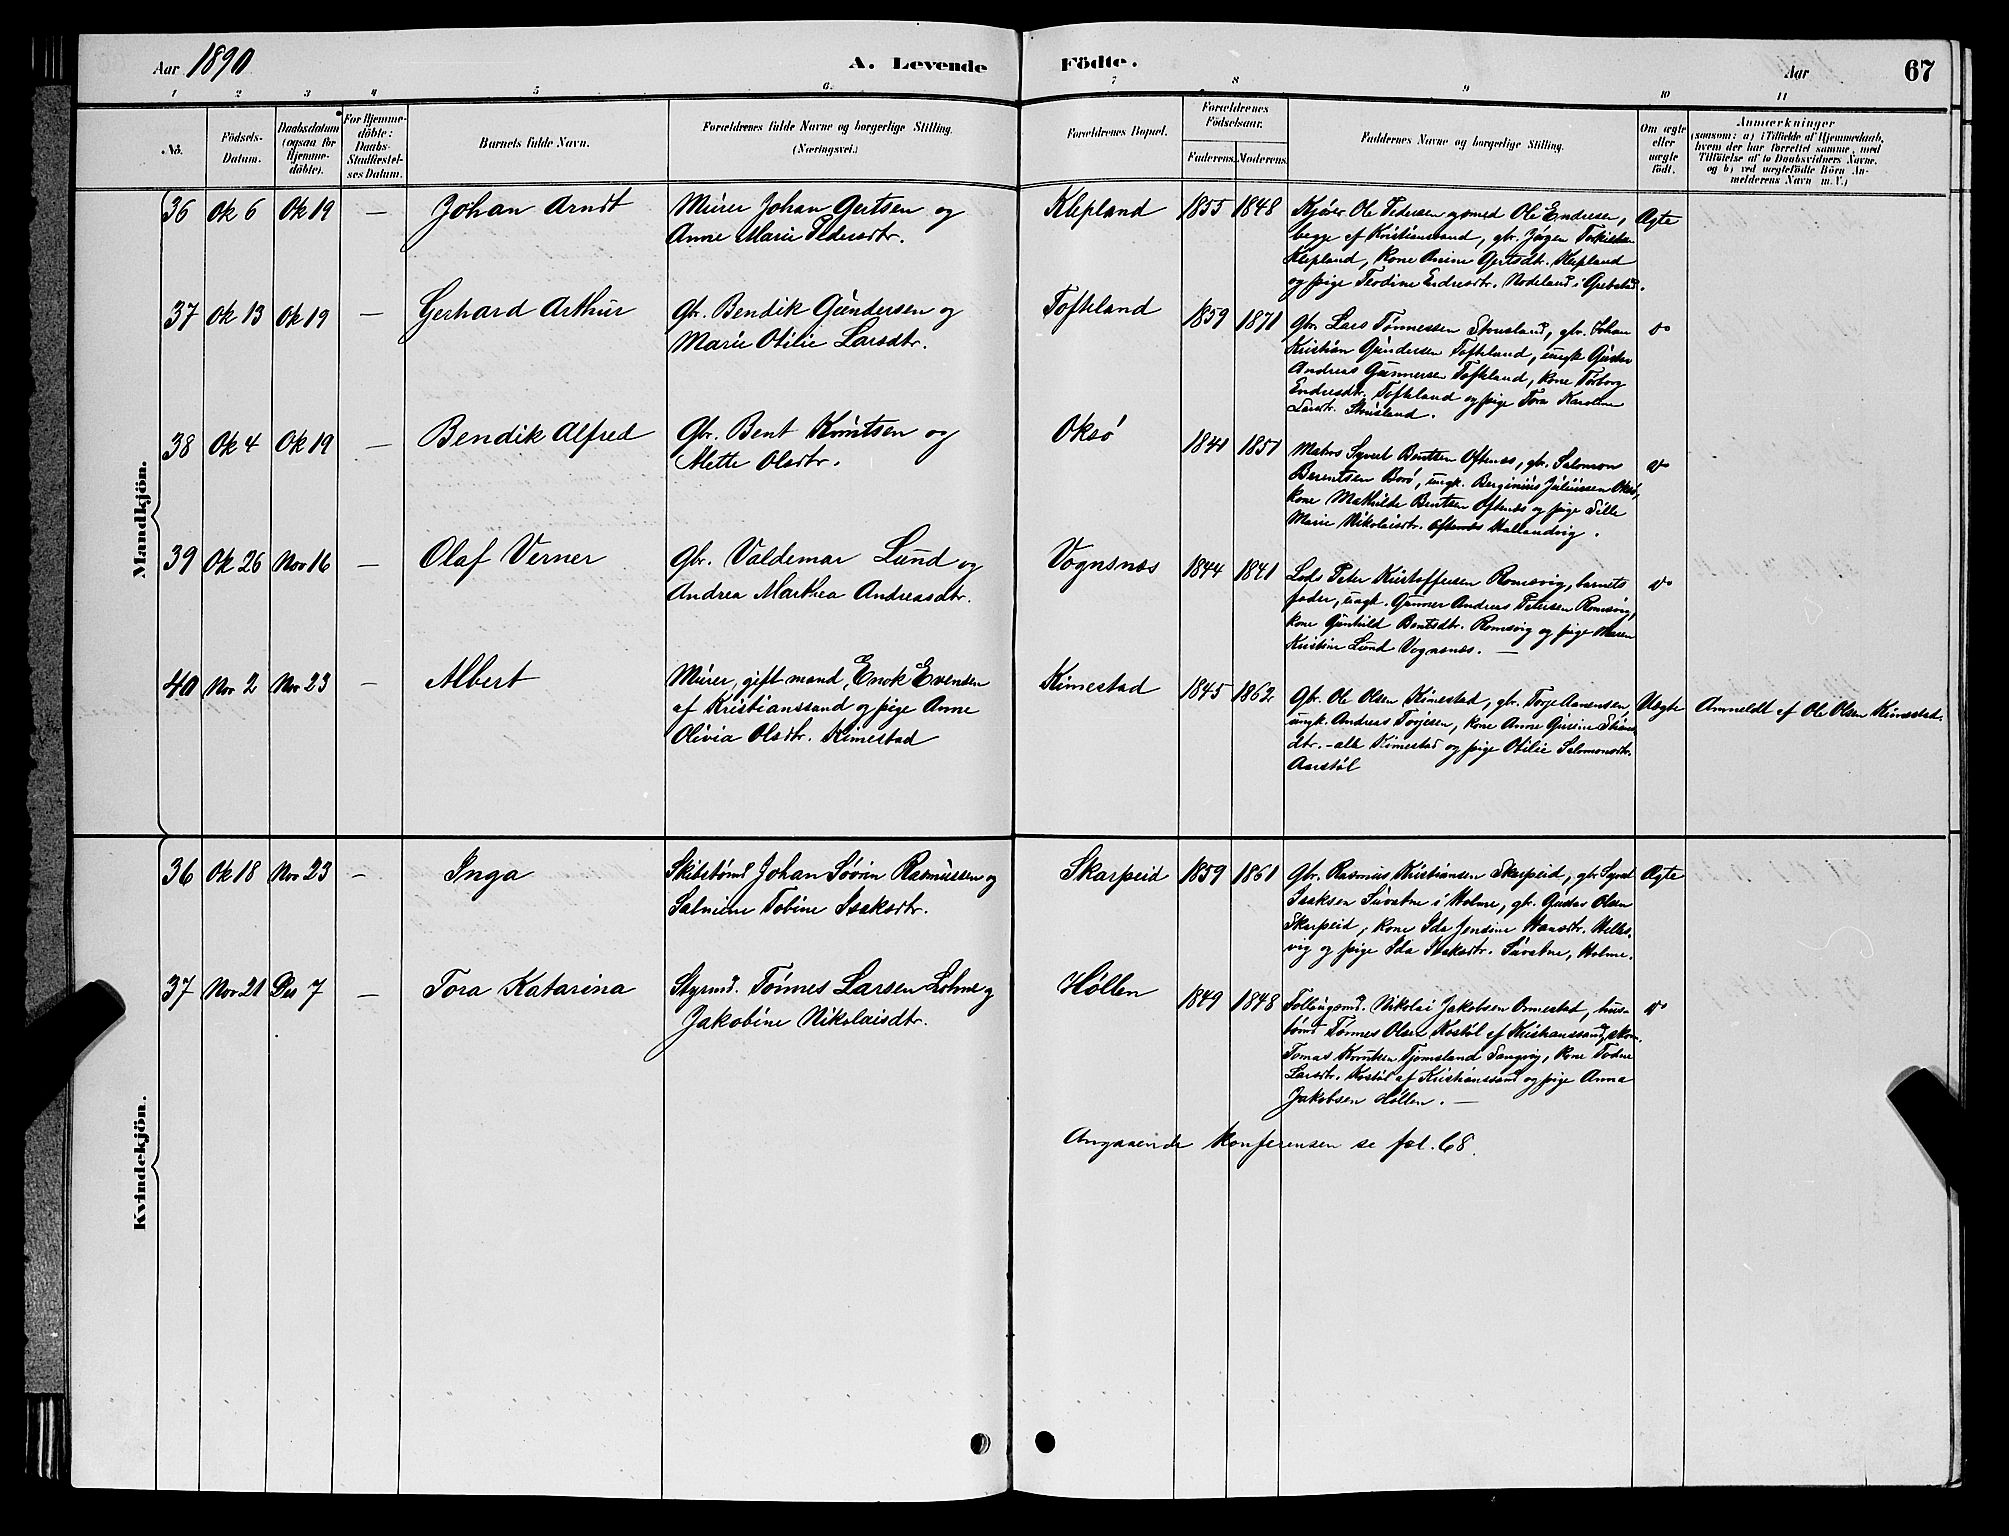 Aar 1890 A. Levende Födte. Aar 67
1 2 3 4 5 6. 7 8 9 10 11
No.
Födsels-
Datum.
Daabsdatum
(ogsaa for
Hjemme-
döbte).
For Hjemme-
döbte:
Daabs-
Stadfæstel-
ses Datum.
Barnets fulde Navn.
Forældrenes fulde Navne og borgerlige Stilling.
(Næringsvei.)
Forældrenes Bopæl.
Forældrenes
Födselsaar.
Faderens. Moderens.
Faddernes Navne og borgerlige Stilling.
Om ægte
eller
uægte
födt.
Anmærkninger
(saasom: a) i Tilfælde af Hjemmedaab,
hvem der har forrettet samme, med
Tilföielse af to Daabsvidners Navne,
og b) ved uægtefödte Börn An-
melderens Navn m. V.)
Mandkjön.
36 Ok 6 Ok 19 — Johan Arndt
Murer Johan Gertsen og
Anne Marie Pedersdtr.
Klepland 1855 1848
Kjöier Ole Pedersen og smed Ole Endresen,
begge af Kristianssand, gbr. Jörgen
Klepland, kone Gertsdtr. Klepland
og pige Teodine Endresdtr. Nodeland i Grebstad.
Ægte
37 Ok 13 Ok 19 — Gerhard Arthur
Gbr. Bendik Gundersen og
Marie Otilie Larsdtr.
Tofteland 1859 1871
Gbr. Lars Tönnessen Stousland, gbr. Johan
Kristian Gundersen Tofteland, ungk. Gustav
Andreas Gunnersen Tofteland, kone Torborg
Endresdtr. Tofteland og pige Tora Karoline
Larsdtr. Stousland.
do
38 Ok 4 Ok 19 — Bendik Alfred
Gbr. Bent Knutsen og
Mette Olsdtr.
Oksö 1841 1851
Matros Syvert Bentsen Oftenæs, gbr. Salomon
Berentsen Borö, ungk. Berginius Juliussen Oksö,
kone Mathilde Bentsen Oftenæs og pige Sille
Marie Nikolaisdtr. Hallandvig.
do
39 Ok 26 Nov 16 — Olaf Verner
Gbr. Valdemar Lund og
Andrea Marthea Andreasdtr.
Vognsnæs 1844 1841
Lods Peter Kristoffersen Romsvig, barnets
fader, ungk. Gunner Andreas Petersen Romsvig,
kone Gunhild Bentsdtr. Romsvig og pige Maren
Kristine Lund Vognsnæs. —
do
40 Nov 2 Nov 23 — Albert
Murer, gift mand, Enok Evensen
af Kristianssand og pige Anne
Olivia Olsdtr. Kimestad
Kimestad 1845 1862
Gbr. Ole Olsen Kimestad, gbr. Torje Aanensen,
ungk. Andreas Torjesen, kone Anne
dtr. - alle Kimestad og pige Otilie Salomonsdtr.
Aarstöl
Uægte Anmeldt af Ole Olsen Kimestad.
Kvindekjön.
36 Ok 18 Nov 23 — Inga
Skibstömd Johan Sövrin Rasmussen og
Salmine Tobine Isaksdtr.
Skarpeid 1859 1861
Gbr. Rasmus Kristiansen Skarpeid, gbr. Syvert
Isaksen Suvatne i Holme, gbr. Gustav Olsen
Skarpeid, kone Ida Jensine Hansdtr. Hells-
vig og pige Ida Isaksdtr. Suvatne, Holme.
Ægte
37 Nov 21 Des 7 — Tora Katarina
Styrmd. Tönnes Larsen Lohne og
Jakobine Nikolaisdtr.
Höllen 1849 1848
Nikolai Jakobsen Ormestad, hus-
tömd Tönnes Olsen Kostöl af Kristianssand, skom.
Tomas Knutsen Tjomsland Langvig, kone Todne
Larsdtr. Kostöl af Kristianssand og pige Anna
Jakobsen Höllen. —
do
Angaaende konferensen se fol. 68.